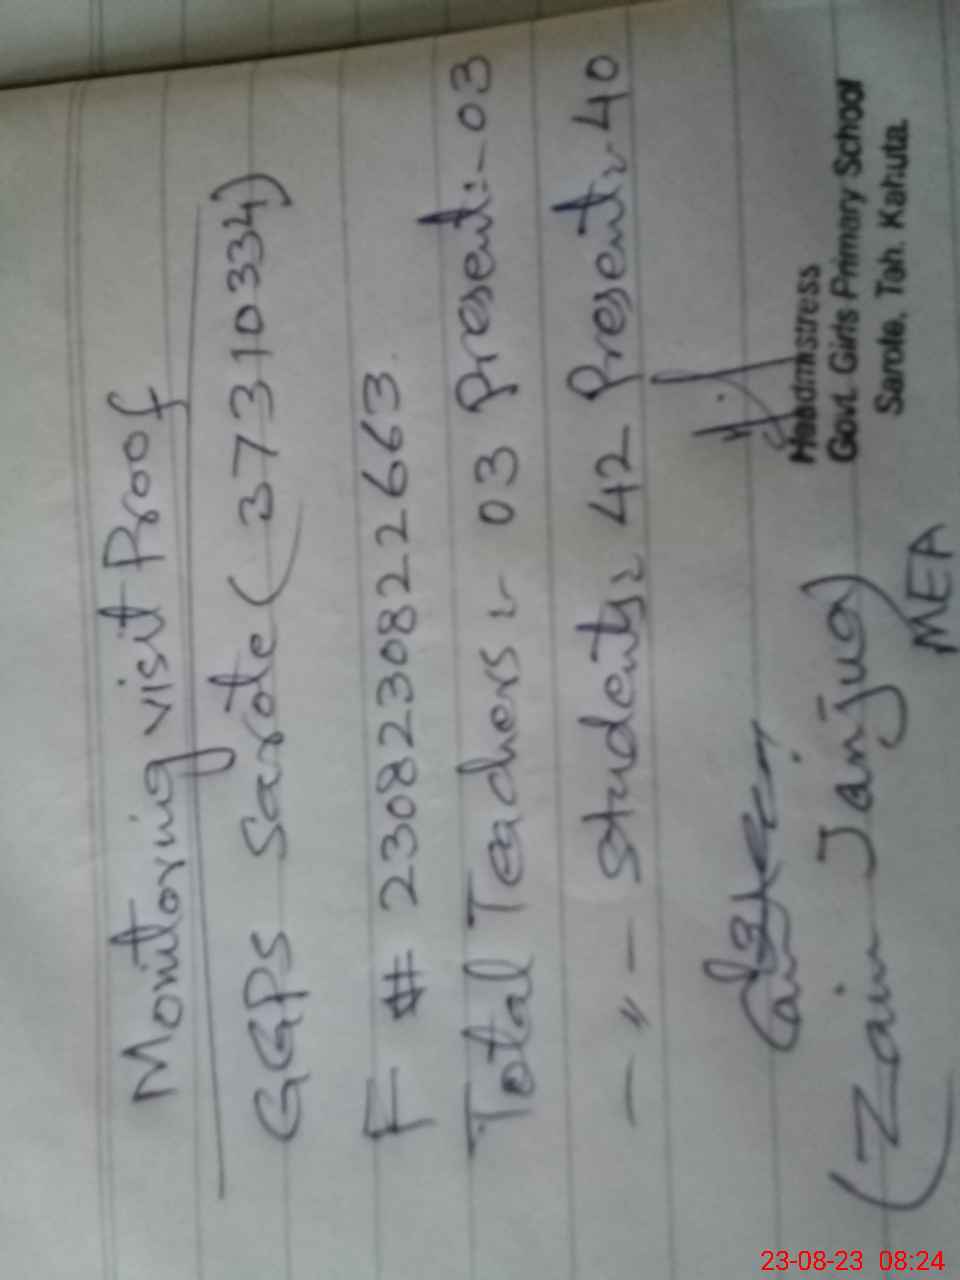 Monitoring visit Proof
GGPS Sarote (37310334)
F # 2308230822663
Total Teachers :- 03 Present :- 03
- " - students :- 42 Present :- 40
Headmistress
Govt. Girls Primary School
Sarote. Teh. Kahuta.
(Zain Janjua)
MEA
23-08-23 08:24